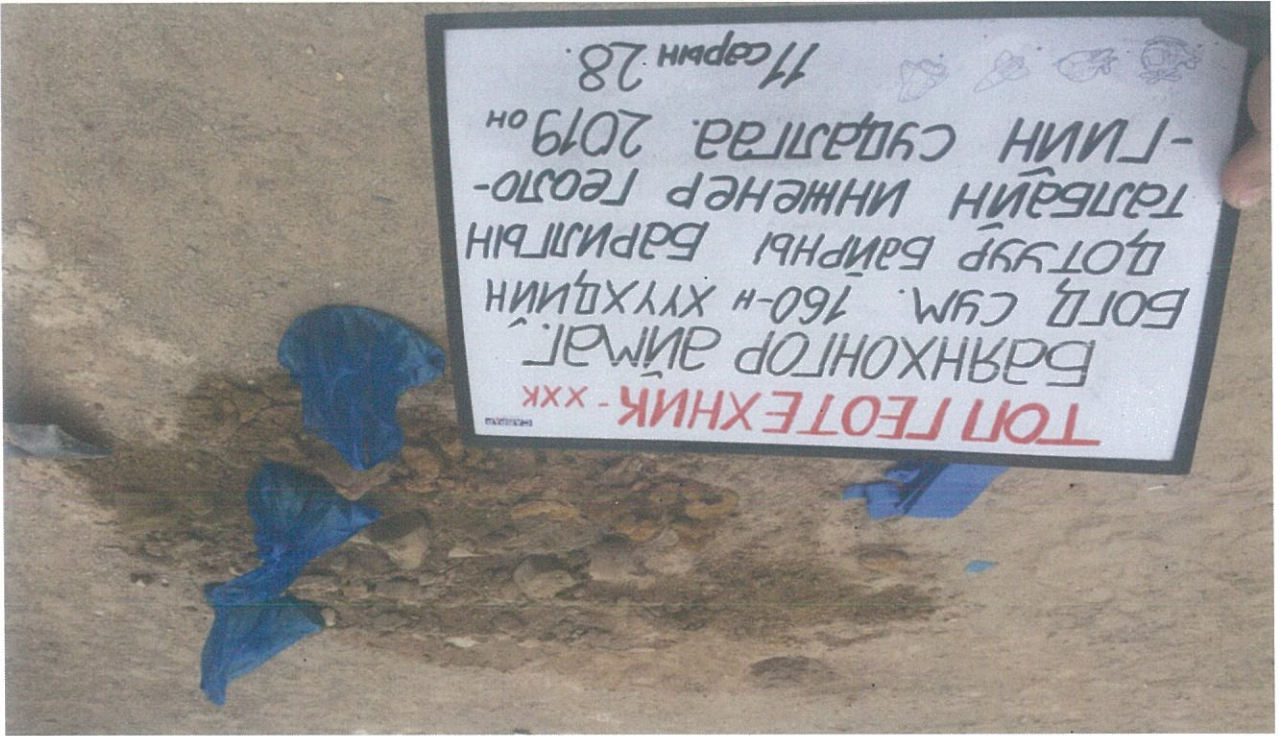 ТОП ГЕОТЕХНИК - ХХК
Баянхонгор аймаг.
Богд сум. 160-н хүүхдийн
дотуур байрны барилгын
талбайн инженер геоло-
-гийн судалгаа. 2019 он
11 сарын 28.